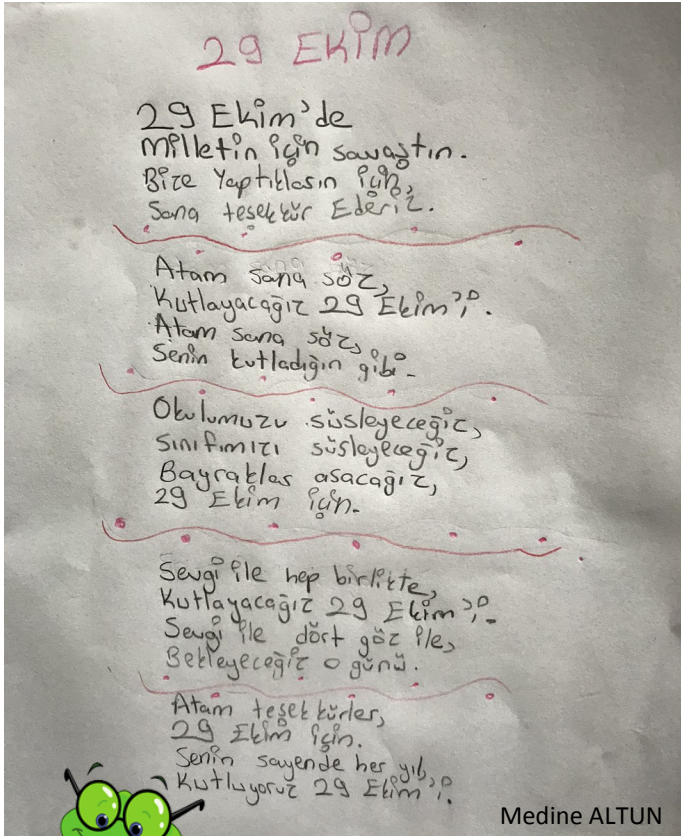 29 EKİM
29 Ekim'de
Milletin için savaştın.
Bize Yaptıkların için,
Sana teşekkür Ederiz.
Atam sana söz,
Kutlayacağız 29 Ekim'i.
Atam sana söz,
Senin kutladığın gibi.
Okulumuzu süsleyeceğiz,
Sınıfımızı süsleyeceğiz,
Bayraklar asacağız,
29 Ekim için.
Sevgi ile hep birlikte,
Kutlayacağız 29 Ekim'i.
Sevgi ile dört göz ile,
Bekleyeceğiz o günü.
Atam teşekkürler,
29 Ekim için.
Senin sayende her yıl,
Kutluyoruz 29 Ekim'i.
Medine ALTUN